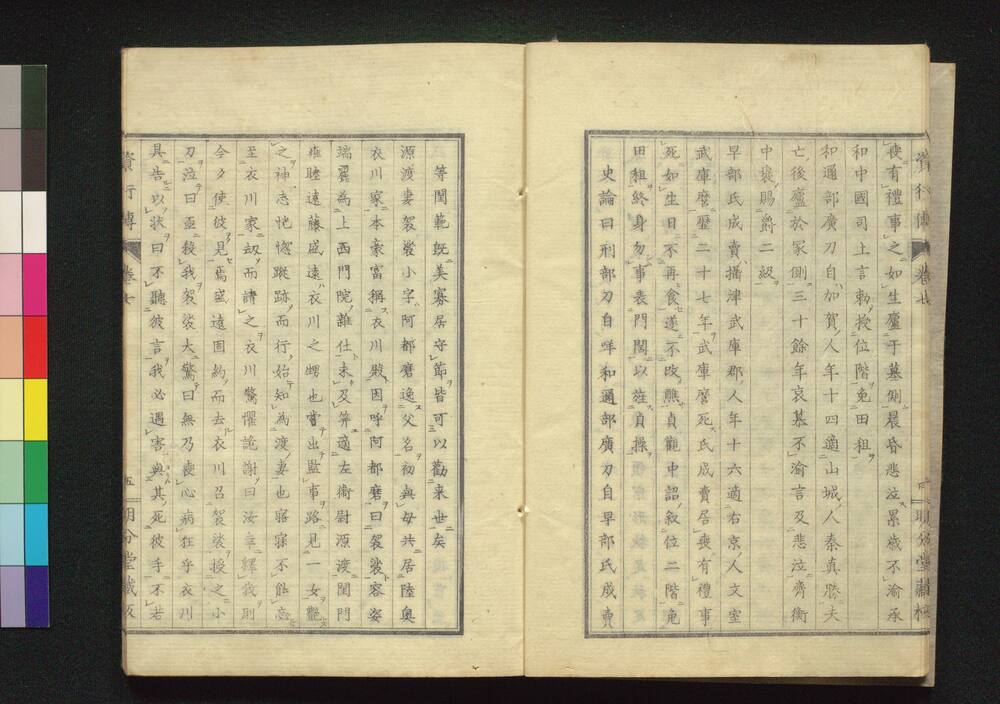 喪有禮事之如生廬于墓側晨昏悲泣累歳不渝承
和中國司上言勅授位階免田租
和邇部廣刀自加賀人年十四適山城人秦真勝夫
亡後廬於冢側三十餘年哀慕不渝言及悲泣齊衡
中襃賜爵二級
早部氏成賣攝津武庫郡人年十六適右京人文室
武庫麿歷二十七年武庫麿死氏成賣居喪有禮事
死如生日不再食遂不改醮貞觀中詔敘位二階免
田租終身勿事表門閭以旌貞操
史論曰刑部刀自咩和邇部廣刀自早部氏成賣
等閨範既美寡居守節皆可以勸来世矣
源渡妻袈裟小字阿都磨逸父名初與母共居陸奥
衣川家本豪富稱衣川殿因呼阿都磨曰袈裟容姿
端麗為上西門院雜仕未及笄適左衛尉源渡閨門
雍睦遠藤盛遠衣川之甥也嘗出監事路見一女艷
之神志怳惚蹤跡而行始知為渡妻也寤寐不能忘
至衣川家劫而請之衣川驚懼詭謝曰汝幸釋我則
今夕使彼見焉盛遠固約而去衣川召袈裟授之小
刀泣曰亟殺我袈裟大驚曰無乃喪心病狂乎衣川
具告以狀曰不聽彼言我必遇害與其死彼手不若
資行傳
卷七
五
明分堂藏板